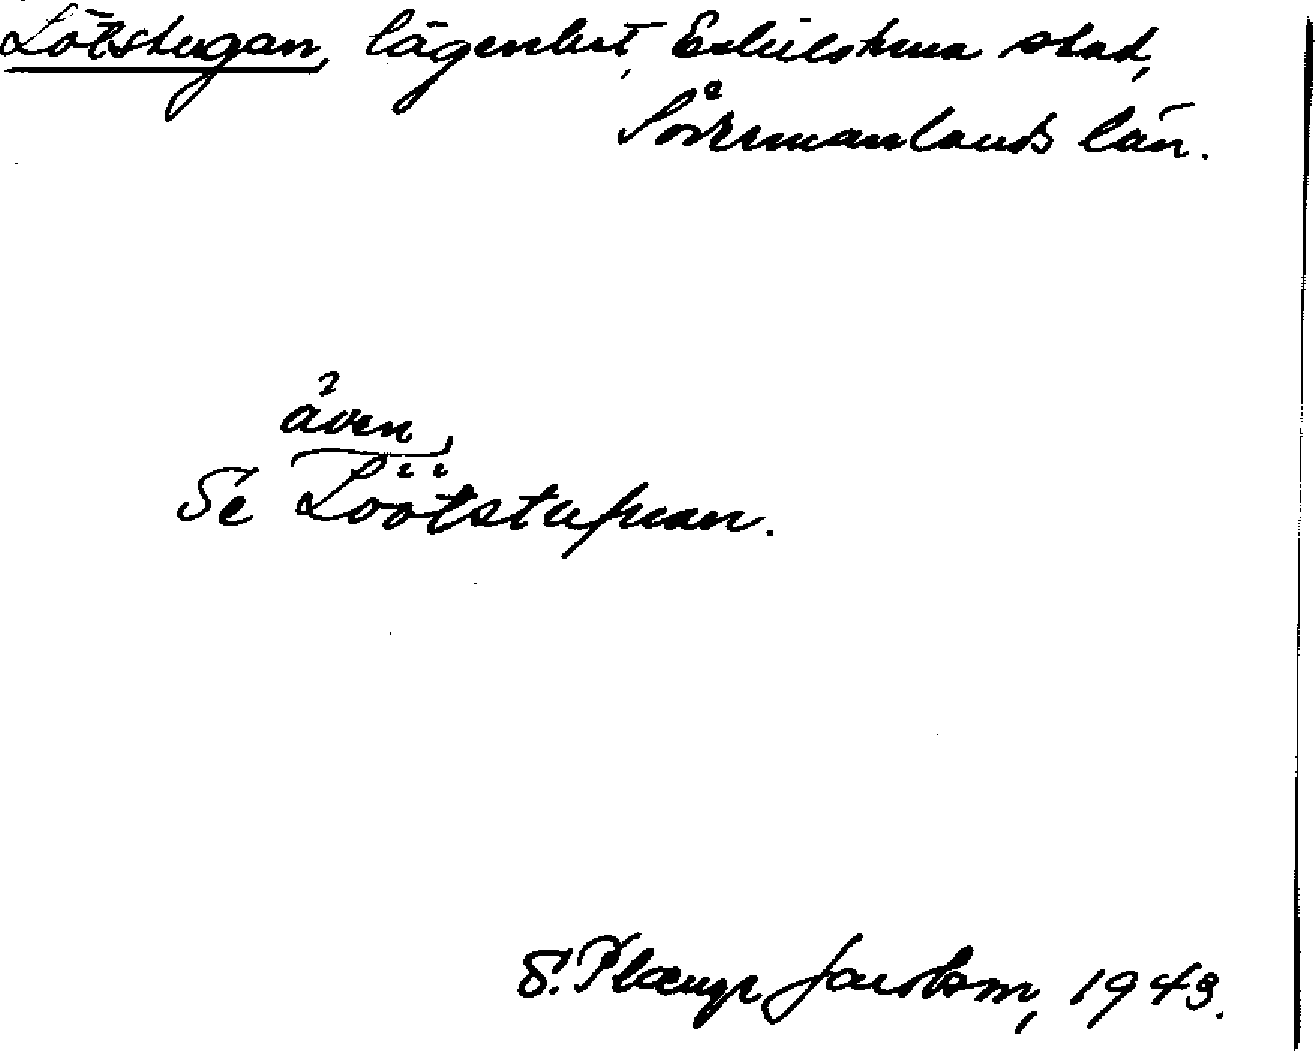 Lötstugan, lägenhet, Eskilstuna stad,
Södermanlands län.
även
Se Löötstufuan.
S. Plænge Jacobson, 1943.